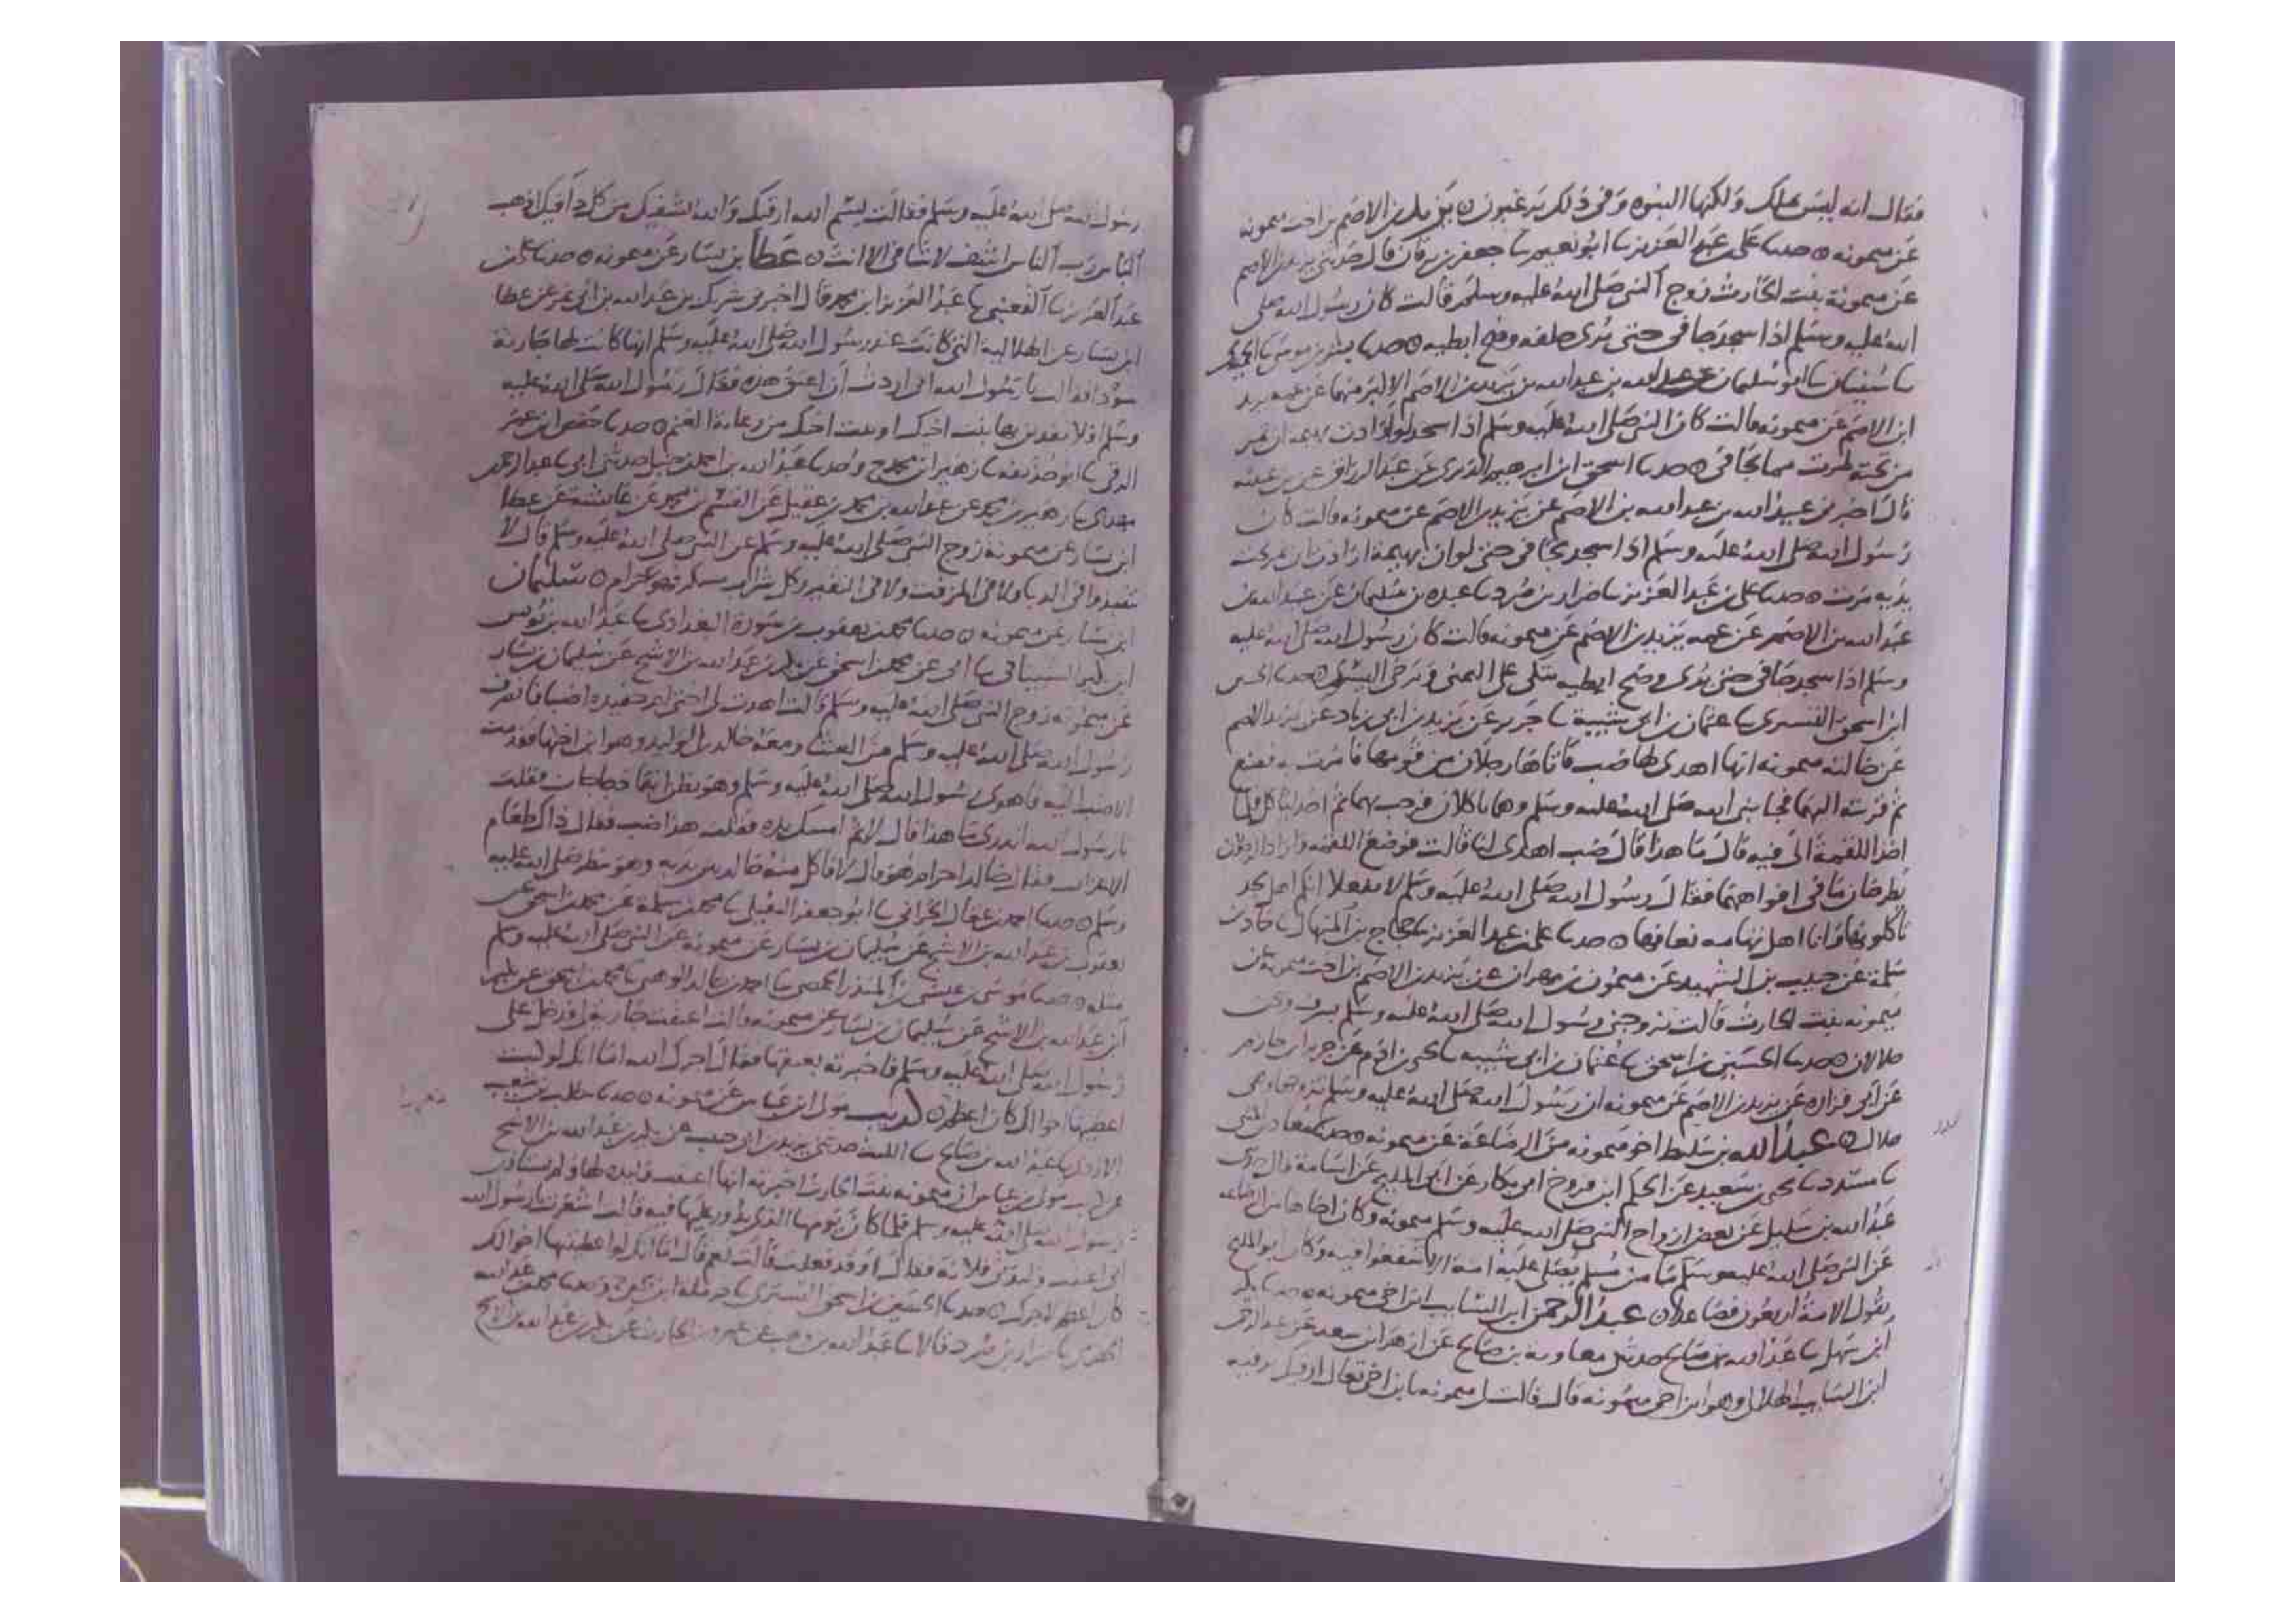 فقال انه ليس بملك ولكنها النبوه وفي ذلك يرغبون ٥ يزيد بن الاصم بن اخت ميمونه
عن ميمونه ٥ حدثنا علي بن عبد العزيز ثنا ابو نعيم ثنا جعفر بن برقان قال حدثني يزيد بن الاصم
عن ميمونة بنت الحارث زوج النبي صلى الله عليه وسلم قالت كان رسول الله صلى
الله عليه وسلم اذا سجد جافى حتى يرى خلفه وضح ابطيه ٥ حدثنا بشر بن موسى ثنا الحميدي
ثنا سفيان ثنا ابو سليمان عبد الله بن عبد الله بن يزيد بن الاصم الاكبر منهما عن عمه يزيد
ابن الاصم عن ميمونه قالت كان النبي صلى الله عليه وسلم اذا سجد لو ارادت بهمه ان تمر
من تحته لمرت مما يجافي ٥ حدثنا اسحق ابن ابرهيم الدبري عن عبد الرزاق عن بن عيينه
قال اخبرني عبيد الله بن عبد الله بن الاصم عن يزيد بن الاصم عن ميمونه قالت كان
رسول الله صلى الله عليه وسلم اذا سجد يجافي حتى لو ان بهيمة ارادت ان تمر تحت
يديه مرت ٥ حدثنا علي بن عبد العزيز ثنا ضرار بن صرد ثنا عبده بن سليمان عن عبيد الله بن
عبد الله بن الاصم عن عمه يزيد بن الاصم عن ميمونه قالت كان رسول الله صلى الله عليه
وسلم اذا سجد جافى حتى يرى وضح ابطيه يتكي على اليمنى ويرخي اليسرى ٥ حدثنا الحسين
ابن اسحق التستري ثنا عثمان بن ابي شيبة ثنا جرير عن يزيد بن ابي زياد عن يزيد بن الاصم
عن خالته ميمونه انها اهدي لها ضب فاتاها رجلان من قومها فامرت به فصنع
ثم قربته اليهما فجا نبي الله صلى الله عليه وسلم وهما ياكلان فرحب بهما ثم اخذ لياكل فلما
اخذ اللقمة الى فيه قال ما هذا قال ضب اهدي لنا قالت فوضع اللقمه واراد الرجلان
يطرحان ما في افواههما فقال رسول الله صلى الله عليه وسلم لا تفعلا انكم اهل نجد
تاكلونها وانا اهل تهامه نعافها ٥ حدثنا علي بن عبد العزيز ثنا حجاج بن المنهال ثنا حماد بن
سلمة عن حبيب بن الشهيد عن ميمون بن مهران عن يزيد بن الاصم بن اخت ميمونة عن
ميمونه بنت الحارث قالت تزوجني رسول الله صلى الله عليه وسلم بسرف ونحن
حلالان ٥ حدثنا الحسين بن اسحق ثنا عثمان بن ابي شيبه ثنا يحيى بن ادم عن جرير ابن حازم
عن ابي فزاره عن يزيد بن الاصم عن ميمونه ان رسول الله صلى الله عليه وسلم تزوجها وهي
حلال ٥ عبد الله بن سليط اخو ميمونه من الرضاعة عن ميمونه ٥ حدثنا معاذ بن المثنى
ثنا مسدد ثنا يحيى بن سعيد عن الحكم ابن فروخ ابي بكار عن ابي المليح عن اسامة قال حدثني
عبد الله بن سليل عن بعض ازواج النبي صلى الله عليه وسلم ميمونه وكان اخاها من الرضاعه
عن النبي صلى الله عليه وسلم ما من مسلم يصلي عليه امة الا شفعوا فيه وكان ابو المليح
يقول الامة اربعون فصاعدا ٥ عبد الرحمن ابن السايب ابن اخي ميمونه ٥ حدثنا بكر
ابن سهل ثنا عبد الله بن صالح حدثني معاوية بن صالح عن ازهر ابن سعيد عن عبد الرحمن
ابن السايب الهلالي وهو ابن اخي ميمونه قال قالت لي ميمونه يا بن اخي تعال ارقيك برقيه
رسول الله صلى الله عليه وسلم فقالت بسم الله ارقيك والله يشفيك من كل دا فيك اذهب
الباس رب الناس اشف لا شافي الا انت ٥ عطا بن يسار عن ميمونه ٥ حدثنا علي بن
عبد العزيز ثنا القعنبي ثنا عبد العزيز ابن محمد قال اخبرني شريك بن عبد الله بن ابي نمر عن عطا
ابن يسار عن الهلالية التي كانت عند رسول الله صلى الله عليه وسلم انها كانت لها جارية
سودا فقالت يا رسول الله اني اردت ان اعتق هذه فقال رسول الله صلى الله عليه
وسلم افلا تفدين بها بنت اخيك او بنت اختك من رعاية الغنم ٥ حدثنا حفص ابن عمر
الرقي ثنا ابو حذيفه ثنا زهير ابن محمد ح وحدثنا عبد الله بن احمد بن حنبل حدثني ابي ثنا عبد الرحمن
بن مهدي ثنا زهير بن محمد عن عبد الله بن محمد بن عقيل عن القسم بن محمد عن عائشة عن عطا
ابن يسار عن ميمونة زوج النبي صلى الله عليه وسلم عن النبي صلى الله عليه وسلم قال لا
تنبذوا في الدبا ولا في المزفت ولا في النقير وكل شراب مسكر فهو حرام ٥ سليمان
ابن يسار عن ميمونه ٥ حدثنا محمد بن يعقوب بن سورة البغدادي ثنا عبد الله بن يونس
ابن بكير الشيباني ثنا ابي عن محمد بن اسحق عن بكير بن عبد الله بن الاشج عن سليمان بن يسار
عن ميمونه زوج النبي صلى الله عليه وسلم قالت اهدت لي اختي ام حفيده اضبا فانصرف
رسول الله صلى الله عليه وسلم من العشا ومعه خالد بن الوليد وهو ابن اختها فقدمت
الاضب اليه فاهوى رسول الله صلى الله عليه وسلم وهو يظن انها دجاجات فقلت
يا رسول الله اتدري ما هذا قال لا ثم امسك يده فقلت هذا ضب فقال ذاك طعام
الاعراب فقال خالد احرام هو قال لا فاكل منه خالد بين يديه وهو ينظر صلى الله عليه
وسلم ٥ حدثنا احمد بن عقال الحراني ثنا ابو جعفر النفيلي ثنا محمد بن سلمة عن محمد بن اسحق عن
يعقوب بن عبد الله بن الاشج عن سليمان بن يسار عن ميمونه عن النبي صلى الله عليه وسلم
مثله ٥ حدثنا موسى بن عيسى بن المنذر الحمصي ثنا احمد بن خالد الوهبي ثنا محمد بن اسحق عن بكير
ابن عبد الله بن الاشج عن سليمان بن يسار عن ميمونه قالت اعتقت جارية لي فدخل علي
رسول الله صلى الله عليه وسلم فاخبرته بعتقها فقال اجرك الله اما انك لو كنت
اعطيتها اخوالك كان اعظم ٥ كريب مولى ابن عباس عن ميمونه ٥ حدثنا مطلب بن شعيب
الازدي ثنا عبد الله بن صالح ثنا الليث حدثني يزيد بن ابي حبيب عن بكير بن عبد الله بن الاشج
عن كريب مولى بن عباس ان ميمونه بنت الحارث اخبرته انها اعتقت وليدة لها ولم تستاذن
رسول الله صلى الله عليه وسلم فلما كان يومها الذي يدور عليها فيه قالت اشعرت يا رسول الله
اني اعتقت وليدتي فلانة فقال او قد فعلت قالت نعم قال اما انك لو اعطيتها اخوالك
كان اعظم لاجرك ٥ حدثنا الحسين بن اسحق التستري ثنا حرملة ابن يحيى ح وحدثنا محمد بن عبد الله
الحضرمي ثنا ضرار بن صرد قالا ثنا عبد الله بن وهب عن عمرو بن الحارث عن بكير بن عبد الله بن الاشج